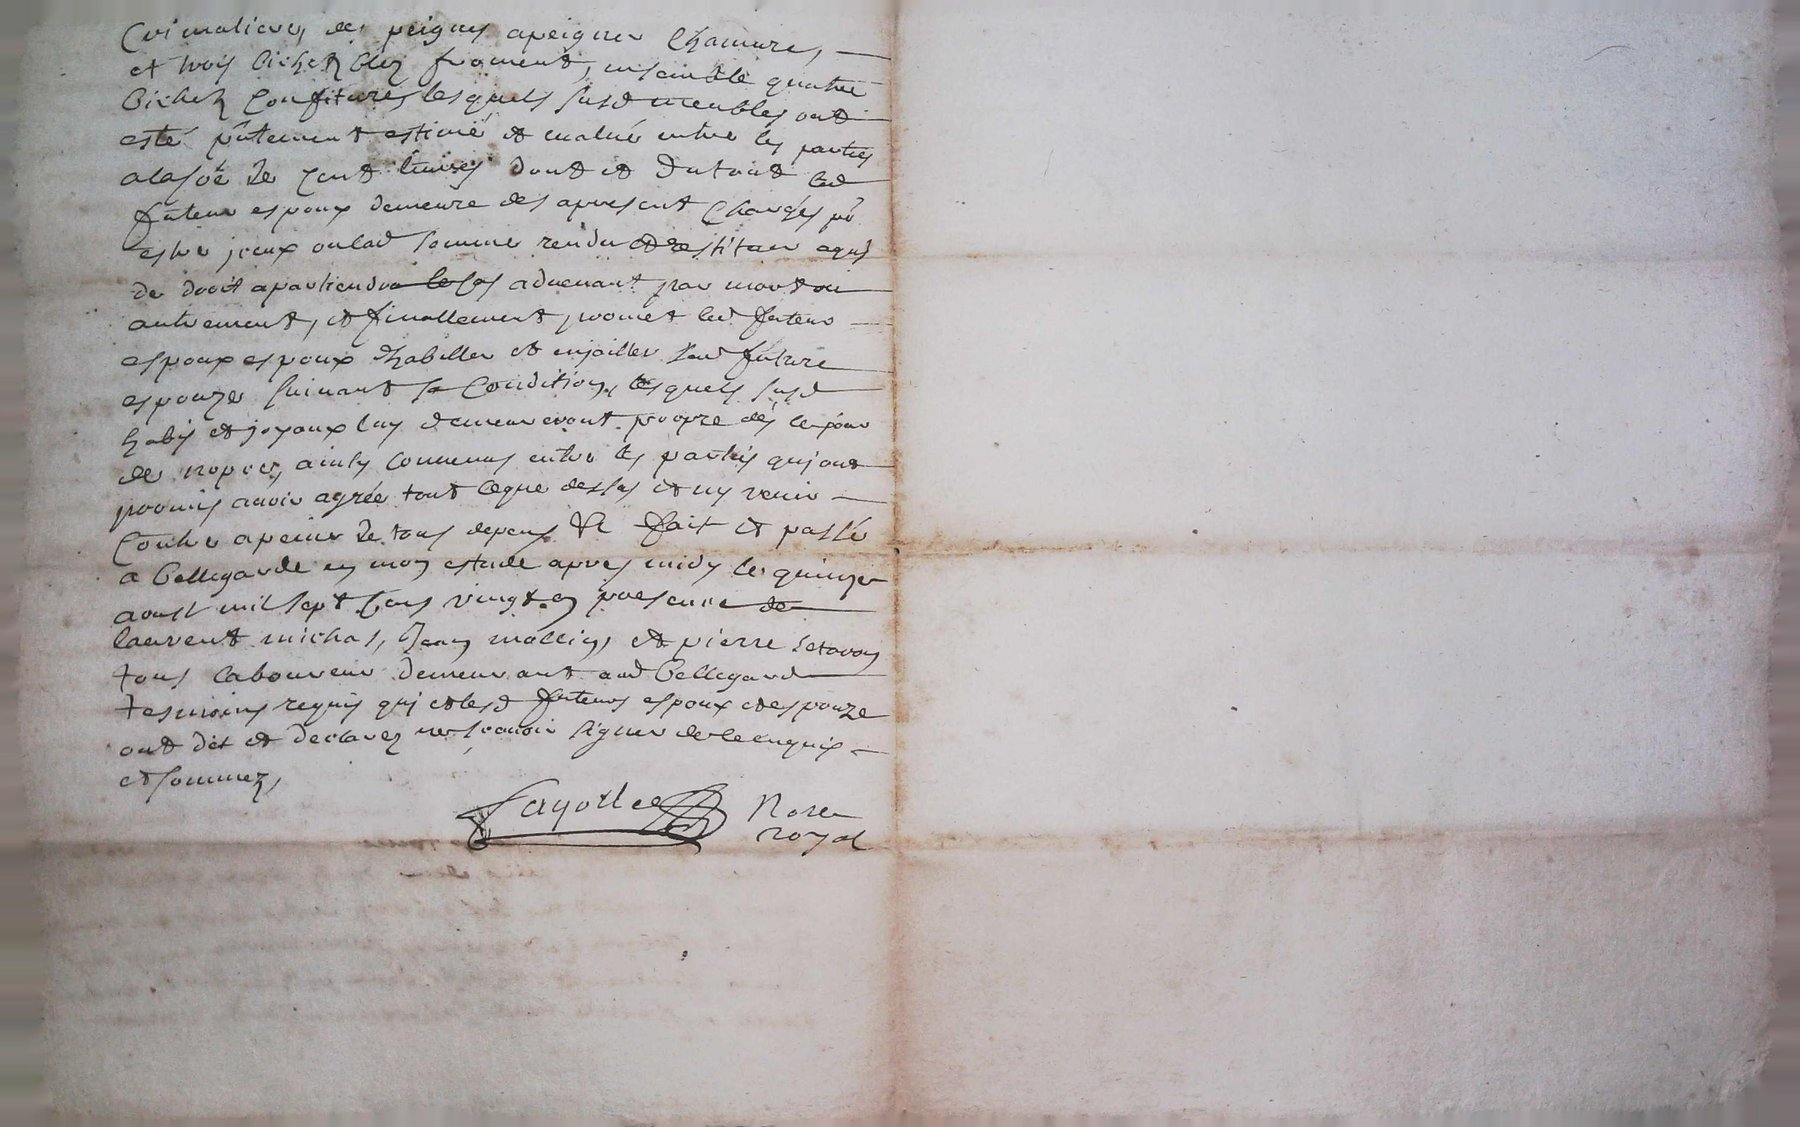 Crimaliere, de peignes a peigner Chanvre,
et trois bichetz bled froment, ensemble quatre
bichetz Confitures lesquels susd meubles ont
esté pntement estimé et evalué entre les parties
a la so^e de cent livres dont et du tout led
futeur espoux demeure des apresent Chargés p^r
estre iceux ou lad somme rendu et restituer a qui
de droit apartiendra le cas advenant par mort ou
autrement, et finallement promet led futeur
espoux espoux d'habiller et enjoailler lad future
espouze suivant sa Condition, lesquels susd
habis et joyaux luy demeureront propre dés le jour
de nopces, ainsy convenus entre les parties qui ont
promis avoir agrée tout ce que dessus et ny venir
Contre a peine de tous depens &c fait et passé
a Bellegarde en mon estude apres midy le quinze
aoust mil sept Cens vingt en presence de
laurent michas, Jean mollin, et pierre
tous laboureur demeurant aud Bellegard
tesmoins requis qui et lesd futeurs espoux et espouze
ont dit et declarez ne scavoir signer de ce enquis
et sommez,
Fayolle No^re
royal